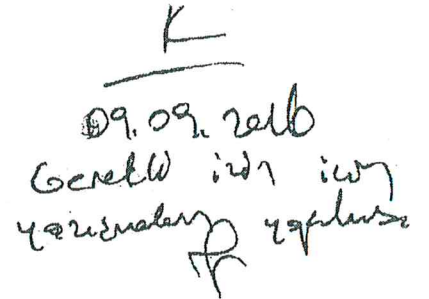 K
09.09.2016
Gerekli izin için
yazışmaların yapılması